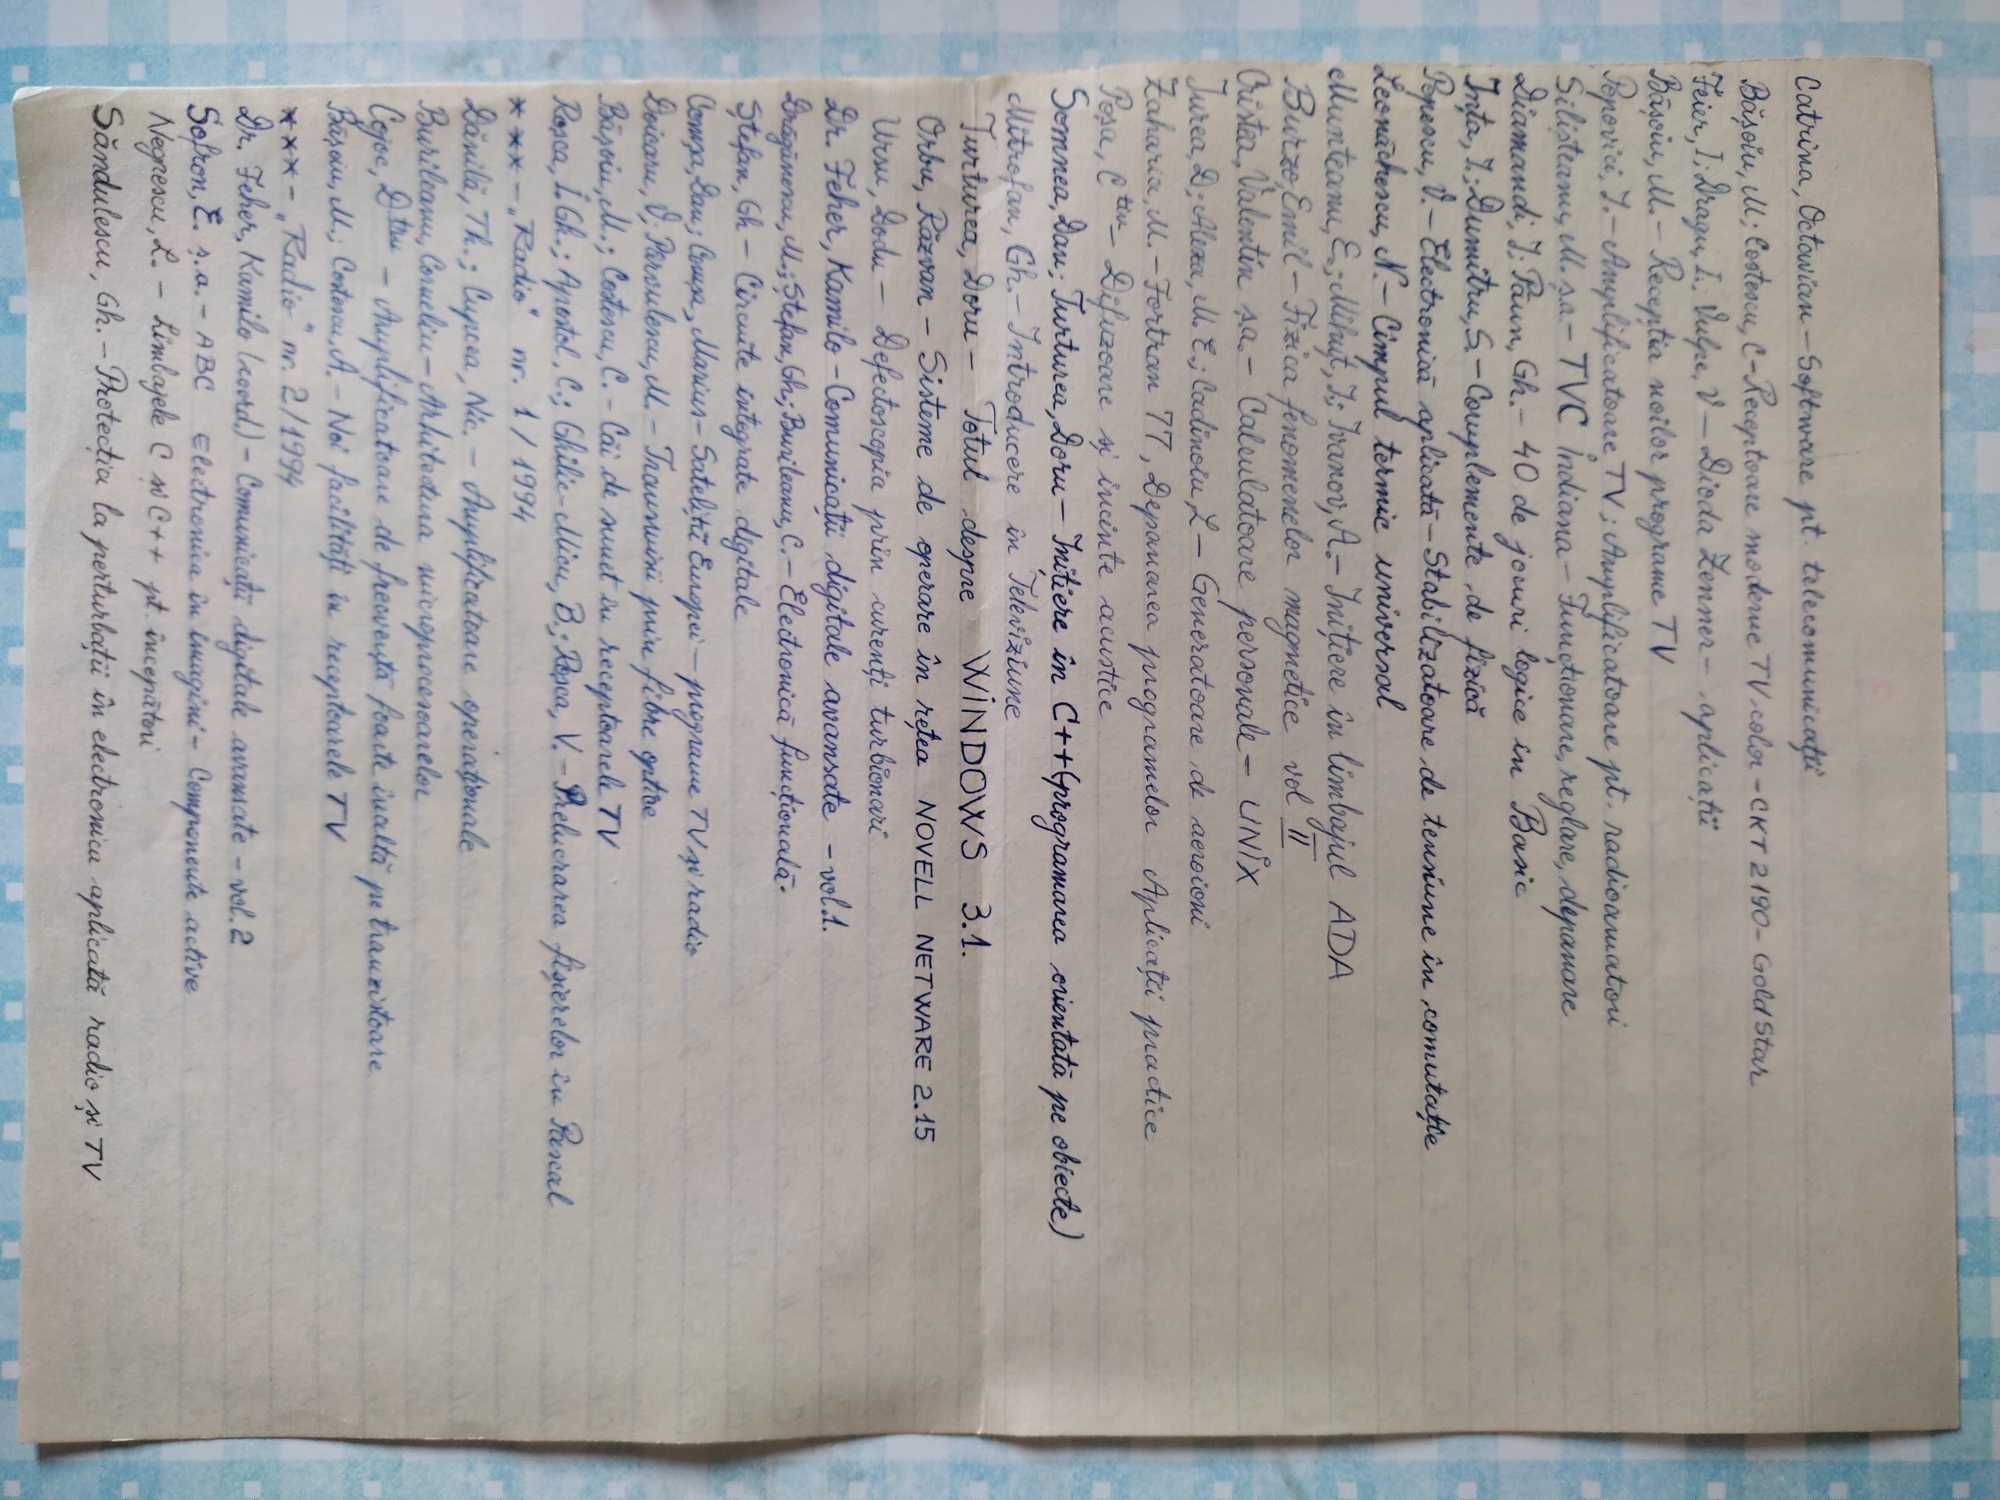 Catrina, Octavian – Software pt. telecomunicații
Bășoiu, M; Costescu, C – Receptoare moderne TV color – CKT 2190 – GoldStar
Feier, I; Dragu, I. Vulpe, V – Dioda Zenner – aplicații
Bășoiu, M. – Recepția noilor programe TV
Popovici, I. – Amplificatoare TV; Amplificatoare pt. radioamatori
Silișteanu, M. ș.a. – TVC Indiana – Funcționare, reglare, depanare
Diamandi, I; Păun, Gh. – 40 de jocuri logice in Basic
Ința, I; Dumitru, S. – Complemente de fizică
Popescu, V. – Electronică aplicată – Stabilizatoare de tensiune în comutație
Leonăchescu, N – Cîmpul termic universal
Munteanu, E.; Mihuț, I.; Ivanov, A. – Inițiere în limbajul ADA
Burzo, Emil – Fizica fenomenelor magnetice vol II
Crista, Valentin ș.a. – Calculatoare personale – UNIX
Jurea, D; Alexa, M. E.; Cadinoiu, L – Generatoare de aeroioni
Zaharia, M – Fortran 77, Depanarea programelor Aplicații practice
Poșa, C-tin – Difuzoare și incinte acustice
Mitrofan, Gh. – Introducere în Televiziune
Somnea, Dan; Turturea, Doru – Inițiere în C++ (programarea orientată pe obiecte)
Turturea, Doru – Totul despre WINDOWS 3.1.
Orbu, Răzvan – Sisteme de operare în rețea NOVELL NETWARE 2.15
Ursu, Dodu – Defectoscopia prin curenți turbionari
Dr. Feher, Kamilo – Comunicații digitale avansate – vol.1.
Drăgănoru, M.; Ștefan, Gh; Burileanu, C. – Electronică funcțională.
Ștefan, Gh – Circuite integrate digitale
Comșa, Dan; Comșa, Marius – Sateliții Europei – programe TV și radio
Doicaru, V; Pârvulescu, M. – Transmisii prin fibre optice
Bășoiu, M.; Costescu, C. – Căi de sunet în receptoarele TV
Roșca, I.Gh.; Apostol, C.; Ghilic-Micu, B; Roșca, V. – Prelucrarea fișierelor în Pascal
*** – „Radio” nr. 1 / 1994
Dănilă, Th.; Cupcea, Nic. – Amplificatoare operaționale
Burileanu, Corneliu – Arhitectura microprocesoarelor
Cojoc, Dtru – Amplificatoare de frecvență foarte înaltă pe tranzistoare
Bășoiu, M; Costescu, A. – Noi facilități în receptoarele TV
*** – „Radio” nr. 2 / 1994
Dr. Feher, Kamilo (coord.) – Comunicații digitale avansate – vol. 2
Sofron, E. ș.a. – ABC Electronica în imagini – Componente active
Negrescu, L. – Limbajele C și C++ pt. începători
Săndulescu, Gh. – Protecția la perturbații în electronica aplicată radio și TV